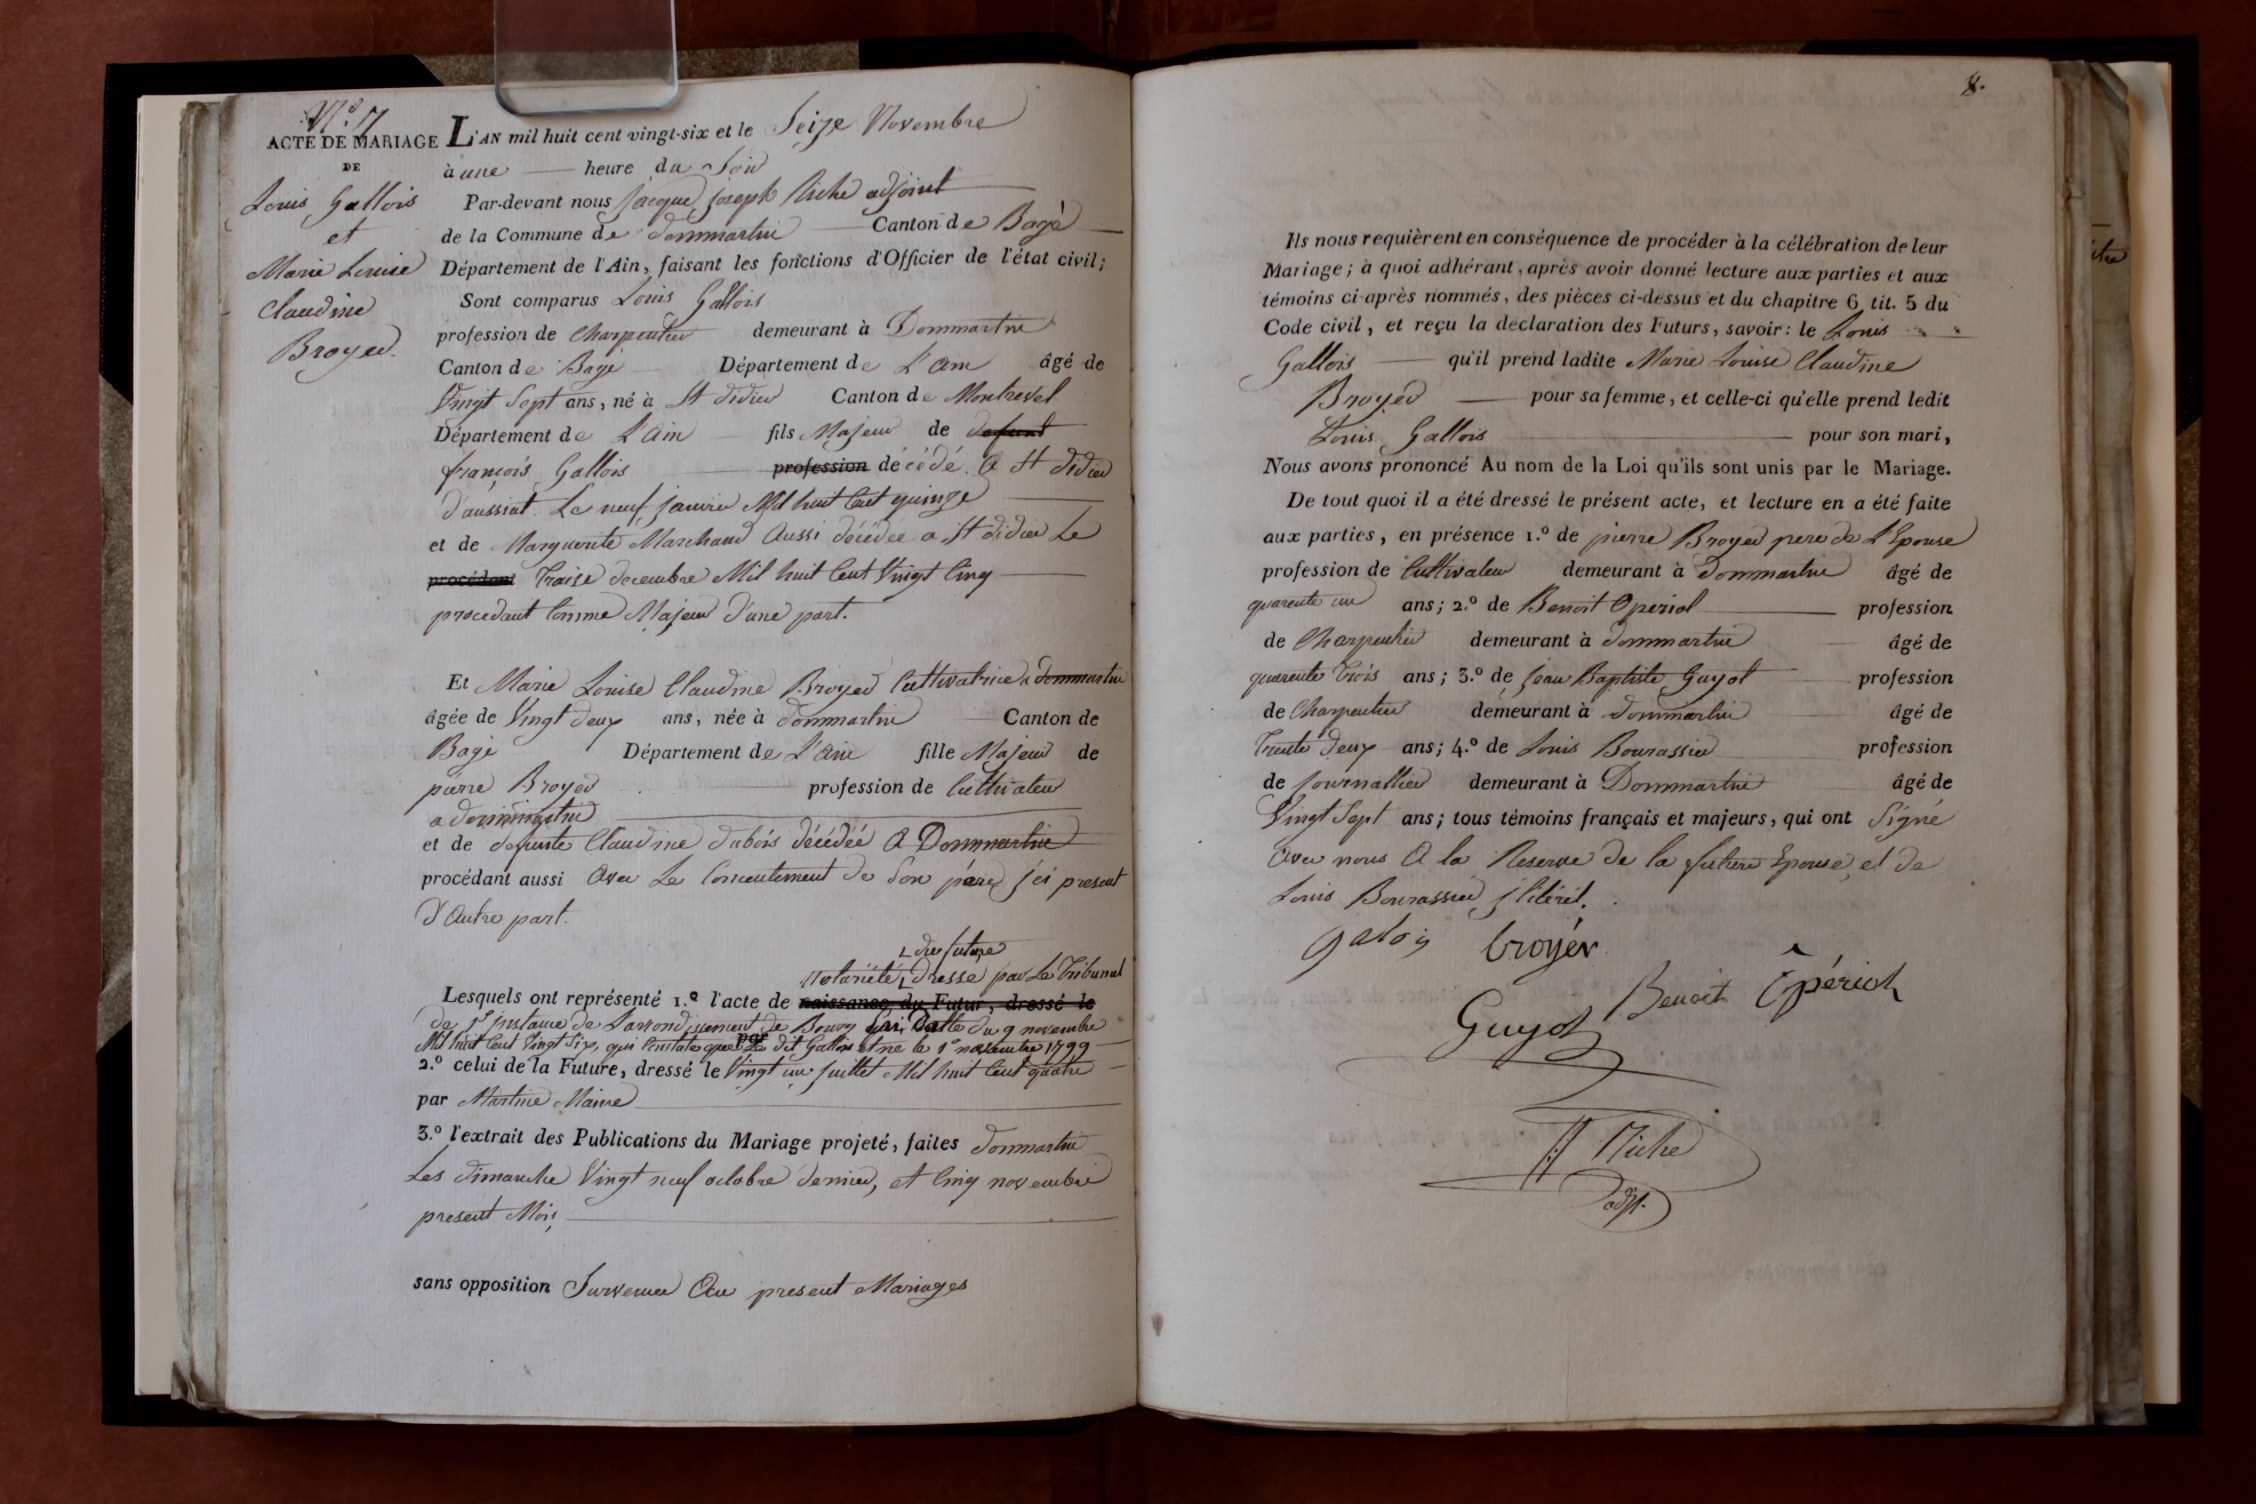 N.º 7
ACTE DE MARIAGE
DE
Louis Gallois
et
Marie Louise
Claudine
Broyer.
L'AN mil huit cent vingt-six et le Seize Novembre
à une heure du Soir
Par-devant nous jacque joseph Riche adjoint
de la Commune de dommartin Canton de Bagé
Département de l'Ain, faisant les fonctions d'Officier de l'état civil;
Sont comparus Louis Gallois
profession de Charpentier demeurant à Dommartin
Canton de Bagé Département de L'ain âgé de
Vingt Sept ans, né à St didier Canton de Montrevel
Département de L'ain fils Majeur de defunt
françois Gallois profession décédé a St didier
d'aussiat Le neuf janvier Mil huit Cent quinze
et de Marguerite Marchand Aussi décédée a St didier Le
procédant Traise decembre Mil huit Cent Vingt Cinq
procedant Comme Majeur D'une part.
Et Marie Louise Claudine Broyer Cultivatrice a dommartin
âgée de Vingt deux ans, née à dommartin Canton de
Bagé Département de L'ain fille Majeur de
pierre Broyer profession de Cultivateur
a dommartin
et de defunte Claudine dubois décédée a Dommartin
procédant aussi Avec Le Consentement de Son père j'ci present
D'Autre part.
du future
Notariété dresse par Le Tribunal
Lesquels ont représenté 1.º l'acte de naissance du Futur, dressé le
de 1re instance de Larrondissement de Bourg En Datte du 9 novembre
Mil huit Cent Vingt Six, qui Constate que Le dit Gallois et né le 1er novembre 1799
par
2.º celui de la Future, dressé le Vingt un juillet Mil huit Cent quatre
par Martine Maire
3.º l'extrait des Publications du Mariage projeté, faites dommartin
Les dimanche Vingt neuf octobre dernier, et Cinq novembre
present Mois,
sans opposition Survenue Au present Mariages
8.
Ils nous requièrent en conséquence de procéder à la célébration de leur
Mariage; à quoi adhérant, après avoir donné lecture aux parties et aux
témoins ci-après nommés, des pièces ci-dessus et du chapitre 6 tit. 5 du
Code civil, et reçu la déclaration des Futurs, savoir: le Louis
Gallois qu'il prend ladite Marie Louise Claudine
Broyer pour sa femme, et celle-ci qu'elle prend ledit
Louis Gallois pour son mari,
Nous avons prononcé Au nom de la Loi qu'ils sont unis par le Mariage.
De tout quoi il a été dressé le présent acte, et lecture en a été faite
aux parties, en présence 1.º de pierre Broyer pere de L'Epouse
profession de Cultivateur demeurant à dommartin âgé de
quarente un ans; 2.º de Benoit Operiol profession
de Charpentier demeurant à dommartin âgé de
quarente trois ans; 3.º de jean Baptiste Guyot profession
de Charpentier demeurant à dommartin âgé de
Trente deux ans; 4.º de Louis Bourassier profession
de journallier demeurant à Dommartin âgé de
Vingt Sept ans; tous témoins français et majeurs, qui ont Signé
Avec nous A la Reserve de la future Epouse, et de
Louis Bourassier jlitéré.
galois broyer
Benoit Ôpériol
Guyot
JJ Riche
adjt.